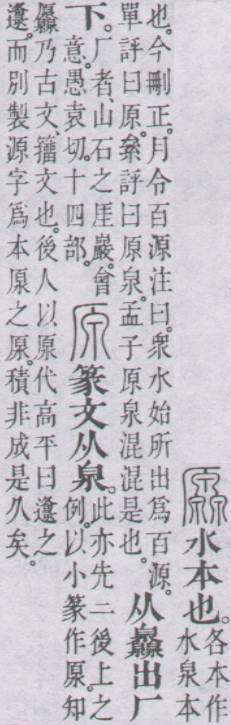 厵水本也。
各本作
水泉本
也。今刪正。月令百源注曰。衆水始所出爲百源。
單評曰原。絫評曰原泉。孟子原泉混混是也。
从灥出厂
下。
厂者、山石之厓巖。會
意。愚袁切。十四部。
原篆文从泉。
此亦先二後上之
例。以小篆作原。知
厵乃古文、籒文也。後人以原代高平曰邍之
邍。而別製源字爲本原之原。積非成是久矣。